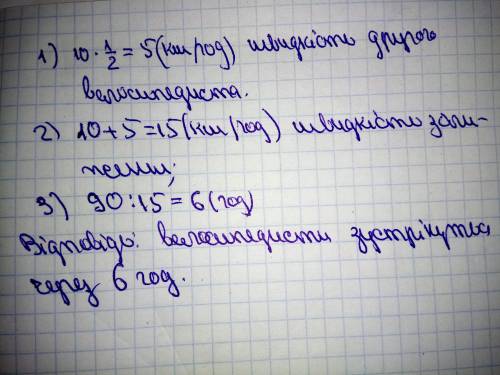 1) 10 · 1/2 = 5 (км/год) швидкість другого
велосипедиста.
2) 10 + 5 = 15 (км/год) швидкість збли-
ження;
3) 90 : 15 = 6 (год)
Відповідь: велосипедисти зустрінуться
через 6 год.